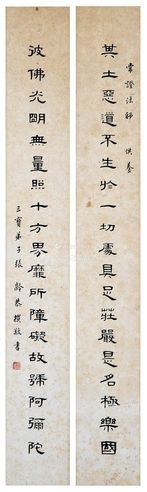 常證法師 供養
其土惡道不生於一切處具足莊嚴是名極樂國
彼佛光明無量照十方界靡所障礙故號阿彌陀
三寶弟子張齡恭撰敬書